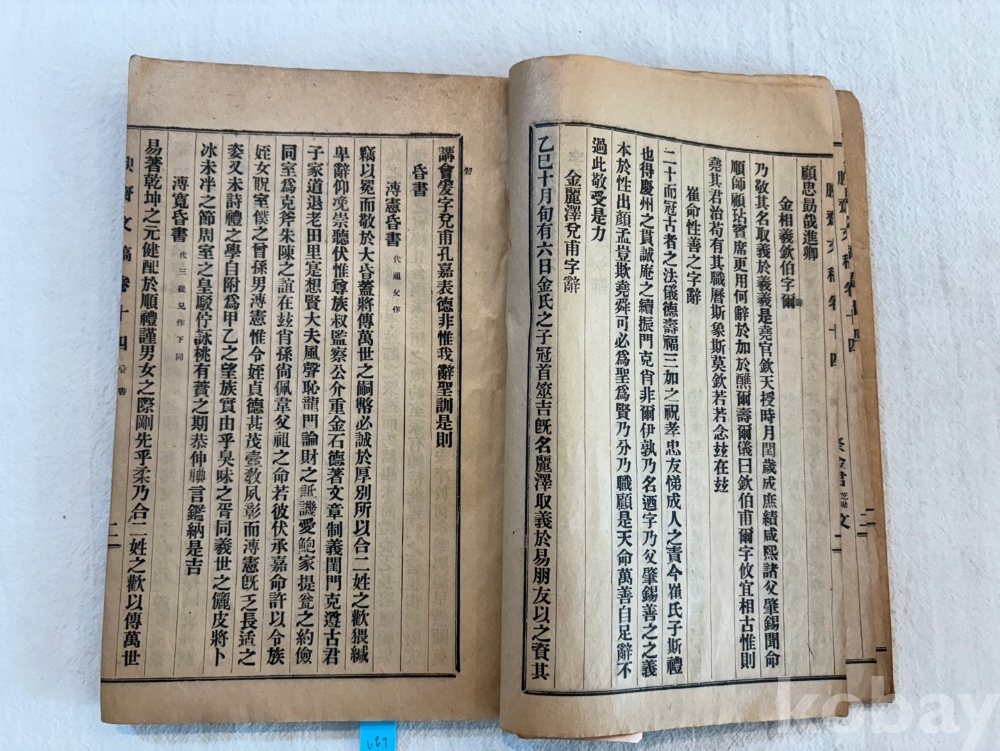 顧忠勗哉進卿
金相羲欽伯字辭
乃敬其名取義於羲羲是堯官欽天授時月閏歲成庶績咸熙諸父肇錫聞命
順師顧玷賓席更用何辭於加於醮爾壽爾儀曰欽伯甫爾字攸宜相古惟則
堯其君治苟有其職曆斯象斯莫欽若若念玆在玆
崔命性善之字辭
二十而冠古者之法儀德壽福三加之祝孝忠友悌成人之責今崔氏子斯禮
也得慶州之貫誠庵之續振門克肖非爾伊孰乃名迺字乃父肇錫善之之義
本於性出顔孟豈欺堯舜可必爲聖爲賢乃分乃職顧是天命萬善自足辭不
過此敬受是力
金麗澤兌甫字辭
乙巳十月旬有六日金氏之子冠首筮吉旣名麗澤取義於易朋友以之資其
講習爰字兌甫孔嘉表德非惟我辭聖訓是則
昏書
漙憲昏書 代祖父作
竊以冕而敬於大昏蓋將傳萬世之嗣幣必誠於厚別所以合二姓之歡猥緘
卑辭仰冼崇聽伏惟尊族叔監察公介重金石德著文章制義閨門克遵古君
子家道退老田里寔想賢大夫風聲恥龍門論財之詆譏愛鮑家提瓮之約儉
同室爲克斧朱陳之誼在玆肖孫尙佩韋父祖之命若彼伏承嘉命許以令族
姪女貺室僕之曾孫男漙憲惟令姪貞德甚茂壼敎夙彰而漙憲旣乏長適之
姿又未詩禮之學自附爲甲乙之望族實由乎臭味之胥同義世之儷皮將卜
冰未泮之節周室之皇駁佇詠桃有蕡之期恭伸聊言鑑納是吉
漙寬昏書 代三從兄作下同
易著乾坤之元健配於順禮謹男女之際剛先乎柔乃合二姓之歡以傳萬世
文稿 卷十四 昏書
二
689
kobay